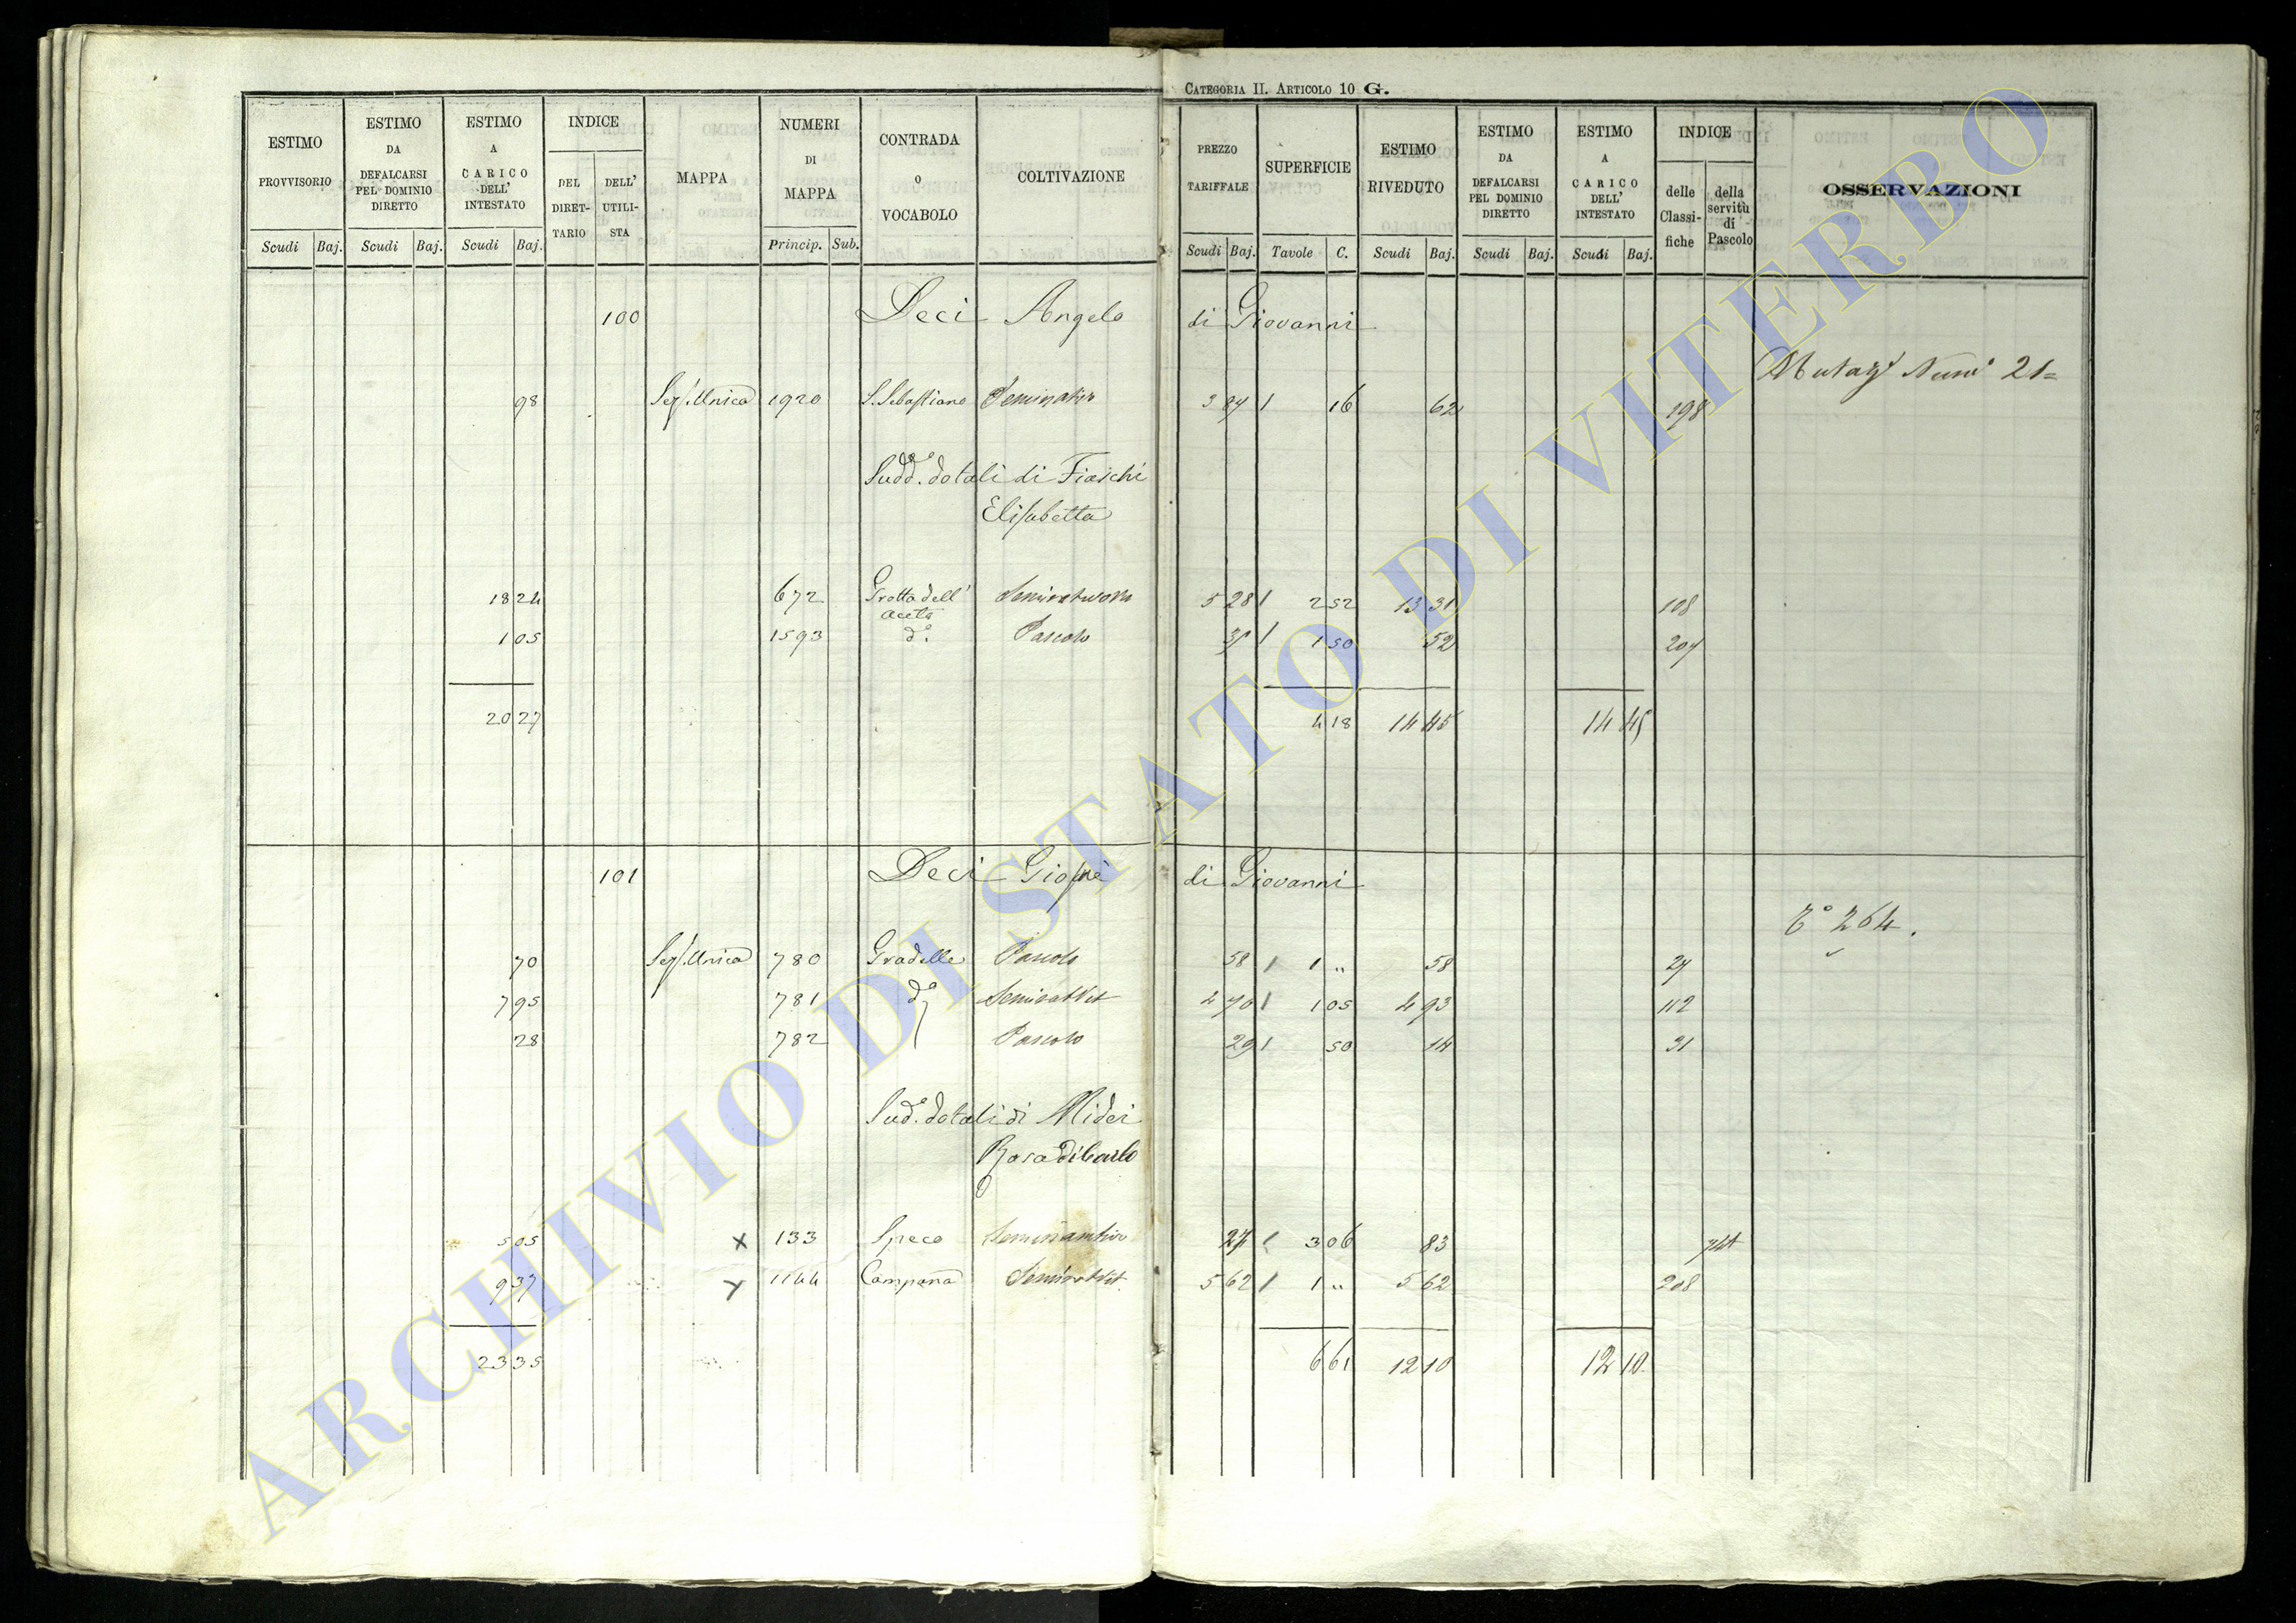 CATEGORIA II. ARTICOLO 10 G.
ESTIMO PROVVISORIO Scudi Baj.
ESTIMO DA DEFALCARSI PEL DOMINIO DIRETTO Scudi Baj.
ESTIMO A CARICO DELL' INTESTATO Scudi Baj.
INDICE DEL DIRET-TARIO DELL' UTILI-STA
MAPPA
NUMERI DI MAPPA Princip. Sub.
CONTRADA O VOCABOLO
COLTIVAZIONE
PREZZO TARIFFALE Scudi Baj.
SUPERFICIE Tavole C.
ESTIMO RIVEDUTO Scudi Baj.
ESTIMO DA DEFALCARSI PEL DOMINIO DIRETTO Scudi Baj.
ESTIMO A CARICO DELL' INTESTATO Scudi Baj.
INDICE delle Classi-fiche della servitù di Pascolo
OSSERVAZIONI
100 Deci Angelo di Giovanni
Mutaz. Num° 21=
98 Sez. Unica 1920 S. Sebastiano 3 84 1 16 62 198
Sudd.° dotali di Fiaschi
Elisabetta
18 24 672 Grotta dell' 5 28 1 2 52 13 31 108
aceto
1 05 1593 d.° Pascolo 1 1 50 52 207
20 27 4 18 14 45 14 45
101 Deci Giosuè di Giovanni
T° 264.
70 Sez. Unica 780 Gradelle Pascolo 58 1 1 " 58 27
7 95 781 d° Seminat Vit 4 70 1 1 05 4 93 112
28 782 Pascolo 29 1 50 14 31
Sud.° dotali di Midei
Rosa di Carlo
5 05 x 133 Speco Seminativo 27 1 3 06 83
9 37 1144 Campana Seminat Vit. 5 62 1 1 " 5 62 208
23 35 6 61 12 10 12 10
ARCHIVIO DI STATO DI VITERBO